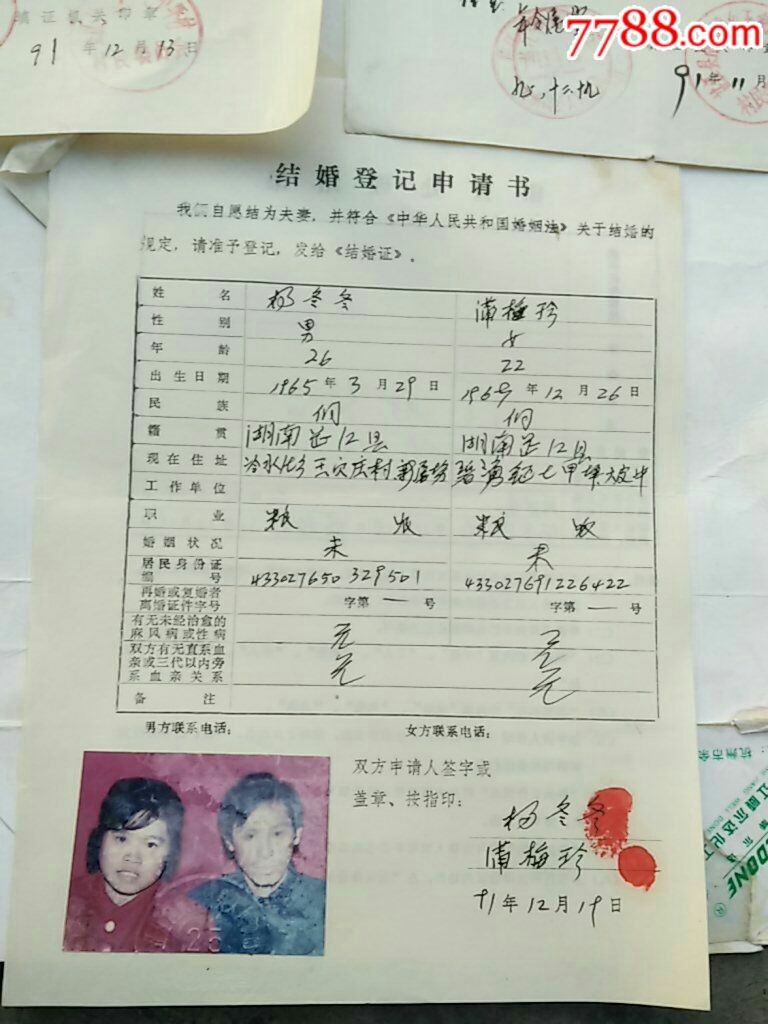 7788.com
填证机关印章
91年12月13日
九一、十二、十九
91年11月
结婚登记申请书
我们自愿结为夫妻，并符合《中华人民共和国婚姻法》关于结婚的
规定，请准予登记，发给《结婚证》。
姓名 杨冬冬 蒲梅珍
性别 男 女
年龄 26 22
出生日期 1965年3月29日 1969年12月26日
民族 侗 侗
籍贯 湖南芷江县 湖南芷江县
现在住址
工作单位
职业 农
婚姻状况 未 未
居民身份证
编号 433027650329501 433027691226422
再婚或复婚者
离婚证件字号 字第一号 字第一号
有无未经治愈的
麻风病或性病 无 无
双方有无直系血
亲或三代以内旁
系血亲关系 无 无
备注
男方联系电话： 女方联系电话：
双方申请人签字或
盖章、按指印：
杨冬冬
蒲梅珍
91年12月19日
25
DONE
杭州市余